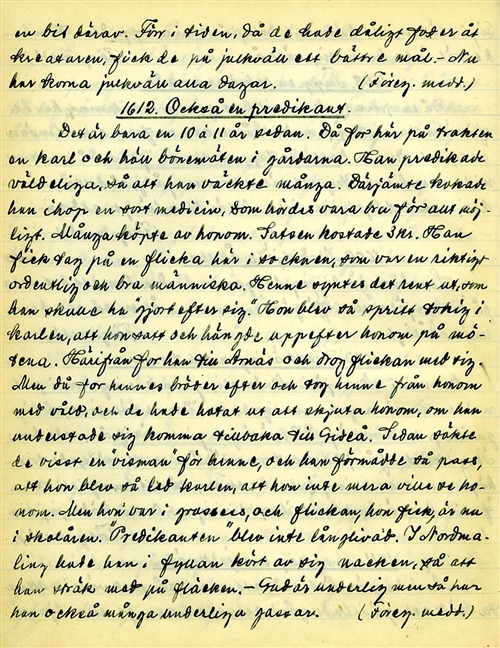 en bit därav. Förr i tiden, då de hade dåligt foder åt
kreaturen, fick de på julkväll ett bättre mål. – Nu
har korna julkväll alla dagar. (Föreg. medd.)
1612. Också en predikant.
Det är bara en 10 à 11 år sedan. Då for här på trakten
en karl och höll bönemöten i gårdarna. Han predikade
väldeliga, så att han väckte många. Därjämte kokade
han ihop en sort medicin, som hördes vara bra för allt möj-
ligt. Många köpte av honom. Satsen kostade 3 kr. Han
fick tag på en flicka här i socknen, som var en riktigt
ordentlig och bra människa. Henne syntes det rent ut, som
han skulle ha "gjort efter sig." Hon blev så spritt tokig i
karlen, att hon satt och hängde uppefter honom på mö-
tena. Härifrån for han till Arnäs och drog flickan med sig.
Men då for hennes bröder efter och tog henne från honom
med våld, och de hade hotat ut att skjuta honom, om han
understode sig komma tillbaka till Gideå. Sedan sökte
de visst en "visman" för henne, och han förmådde så pass,
att hon blev så led karlen, att hon inte mera ville se ho-
nom. Men hon var i grossess, och flickan, hon fick, är nu
i skolåren. "Predikanten" blev inte långlivad. I Nordma-
ling hade han i fyllan kört av sig nacken, så att
han strök med på fläcken. – Gud är underlig men så har
han också många underliga gässar. (Föreg. medd.)